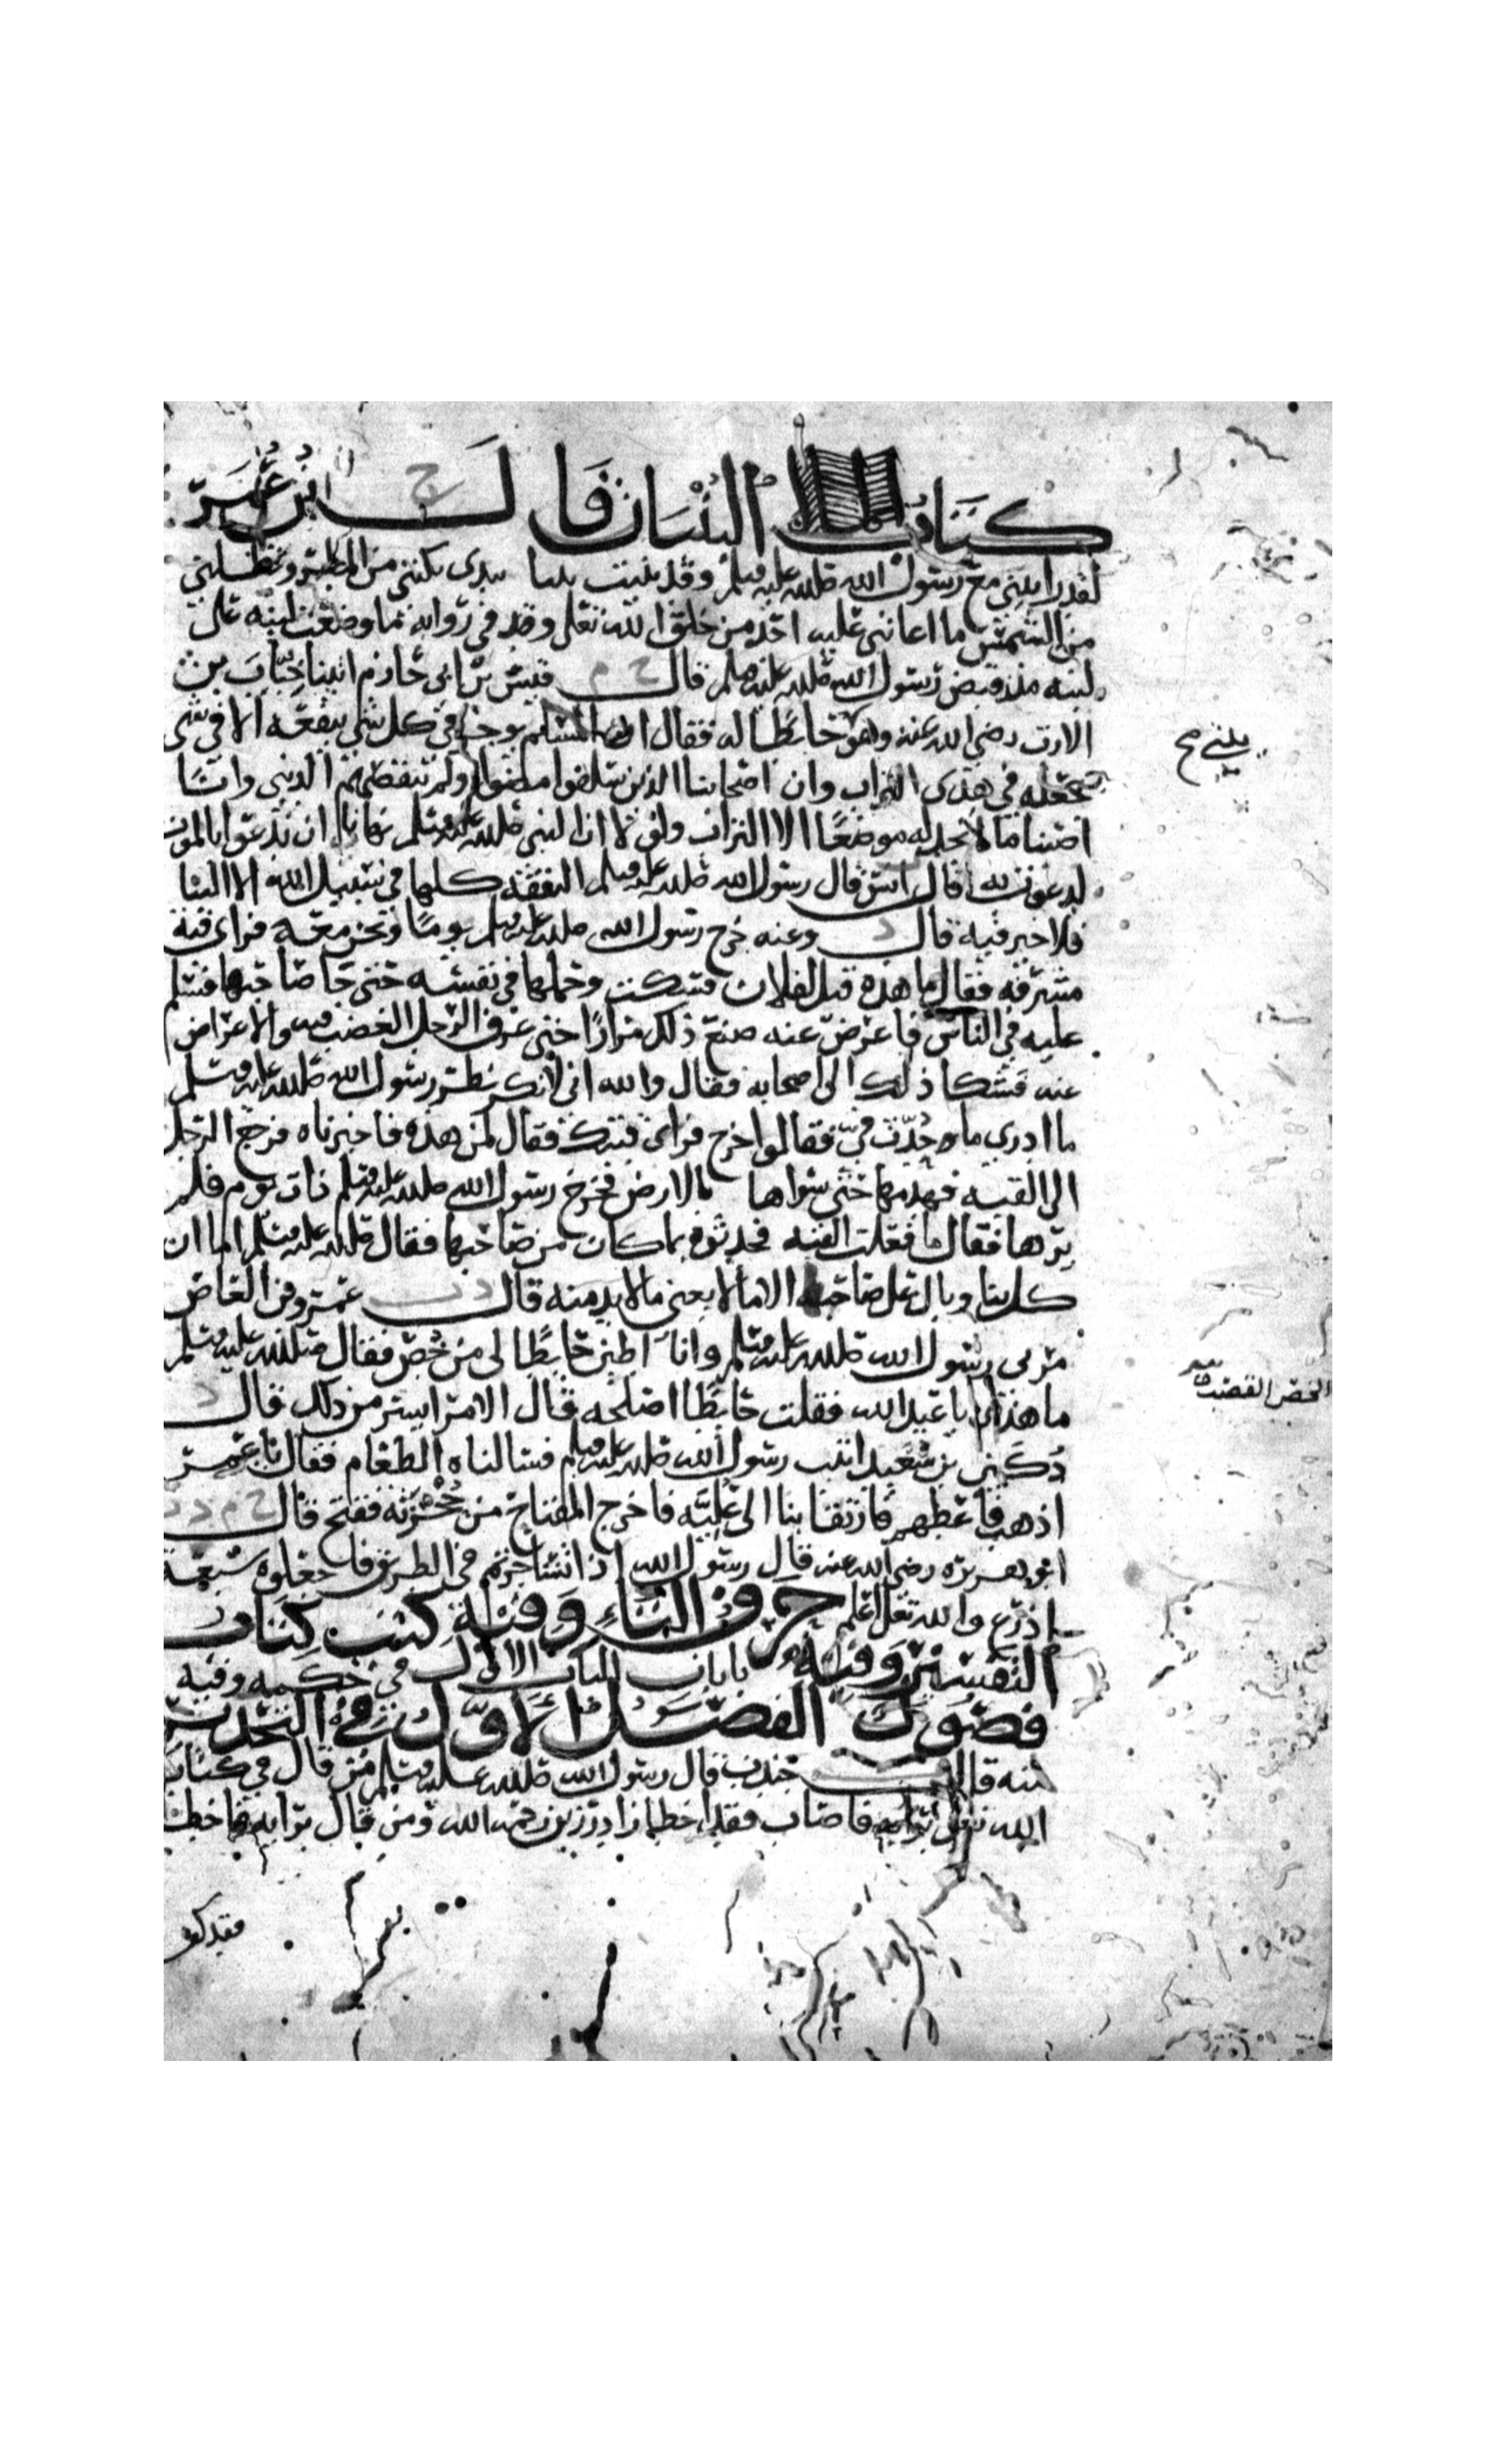 كتاب البنيان قال ح ابن عمر
لقد رايتني مع رسول الله صلى الله عليه وسلم وقد بنيت بيتا بيدي يكنني من المطر ويظلني
من الشمس ما اعانني عليه احد من خلق الله تعلى وقد في روايه ما وضعت لبنه على
لبنه منذ قبض رسول الله صلى الله عليه وسلم قال خ م قيس بن ابي حازم اتينا خباب بن
الارت رضي الله عنه وهو حايطا له فقال ان المسلم يوجر في كل شي ينفقه الا في شي
يجعله في هذى التراب وان اصحابنا الذين سلفوا مضوا ولم تنقصهم الدنيى وانا
اصبنا ما لا نجد له موضعا الا التراب ولولا ان النبي صلى الله عليه وسلم نهانا ان ندعوا بالموت
لدعوت به قال انس قال رسول الله صلى الله عليه وسلم النفقه كلها في سبيل الله الا البنا
فلا خير فيه قال د وعنه خرج رسول الله صلى الله عليه وسلم يوما ونحن معه فراى قبة
مشرفه فقال ما هذه قيل لفلان فسكت وحملها في نفسه حتى جا صاحبها فسلم
عليه في الناس فاعرض عنه صنع ذلك مرارا حتى عرف الرجل الغضب فيه والاعراض
عنه فشكا ذلك الى اصحابه فقال والله اني لانكر نظر رسول الله صلى الله عليه وسلم
ما ادري ما حدث في فقالوا خرج فراى قبتك فقال لمن هذه فاخبرناه فرجع الرجل
الى القبه فهدمها حتى سواها بالارض فخرج رسول الله صلى الله عليه وسلم ذات يوم فلم
يرها فقال ما فعلت القبه فحدثوه بما كان من صاحبها فقال صلى الله عليه وسلم اما ان
كل بنا وبال على صاحبه الا ما لا يعنى ما لا بد منه قال د ت عمرو بن العاص
مر بي رسول الله صلى الله عليه وسلم وانا اطين حايطا لي من خص فقال صلى الله عليه وسلم
ما هذا يا عبد الله فقلت حايطا اصلحه قال الامر ايسر من ذلك قال د
دكين بن سعيد اتيت رسول الله صلى الله عليه وسلم فسالناه الطعام فقال يا عمر
اذهب فاعطهم فارتقا بنا الى علية فاخرج المفتاح من حجزته ففتح قال خ م د ت
ابو هريره رضي الله عنه قال رسول الله اذا تشاجرتم في الطريق فاجعلوه سبعة
اذرع والله تعلى اعلم حرف التاء وفيه كتب كتاب
التفسير وفيه بابان الباب الاول في حكمه وفيه
فصول الفصل الاول في التحذير
منه قال جندب قال رسول الله صلى الله عليه وسلم من قال في كتاب
الله تعلى برايه فاصاب فقد اخطا زاد رزين رحمه الله ومن قال برايه فاخطا
فقد كفر
الخص القصب